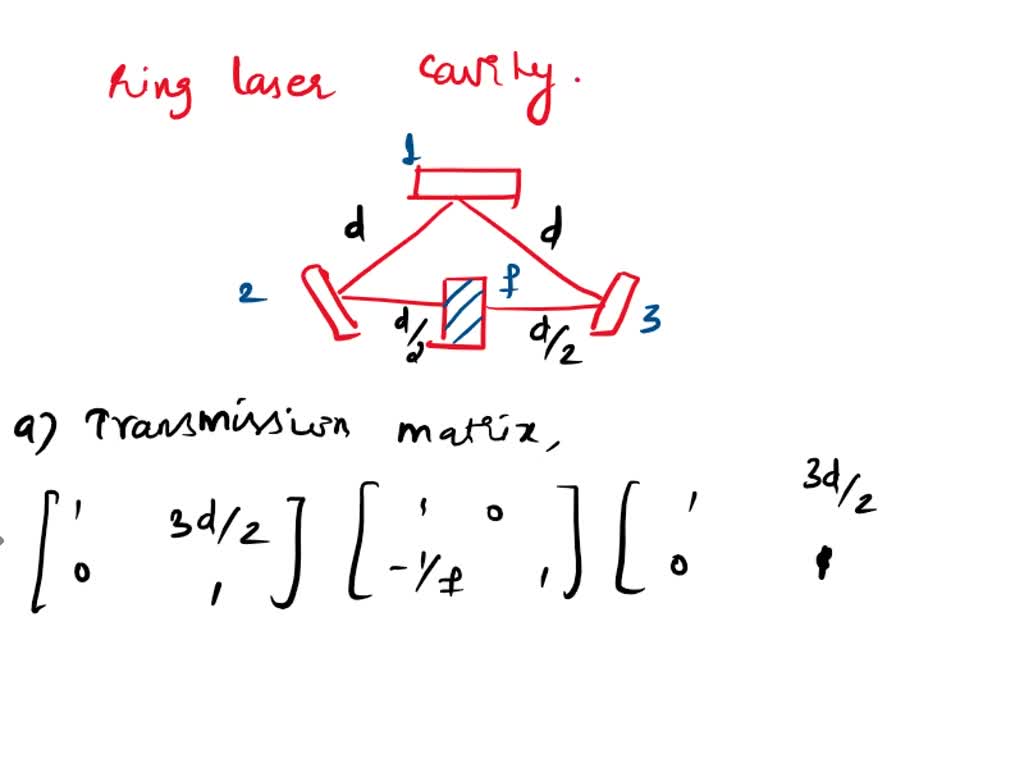 ring laser cavity.
1
d d
2 f
d/2 d/2 3
a) Transmission matrix,
[ 1 3d/2 ] [ 1 0 ] [ 1 3d/2
0 1 -1/f 1 0 1